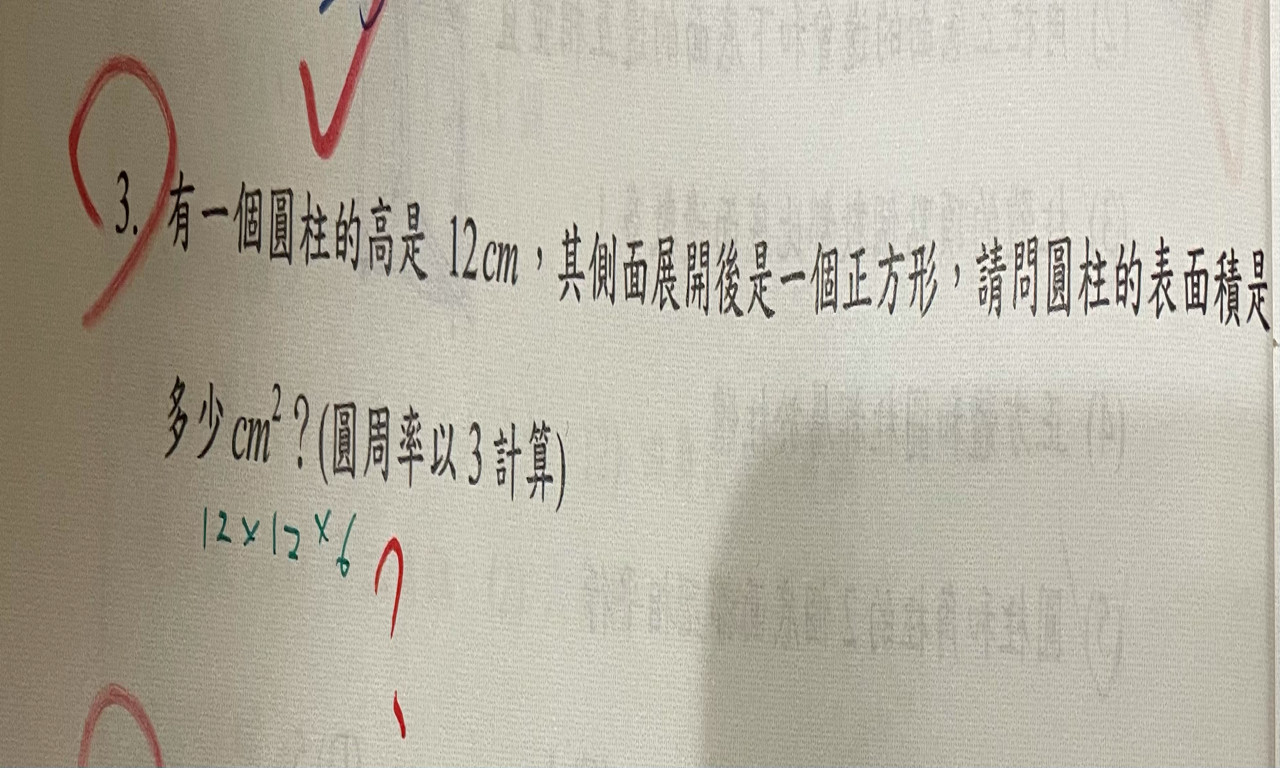 3. 有一個圓柱的高是 12cm，其側面展開後是一個正方形，請問圓柱的表面積是
多少cm²？(圓周率以3計算)
12×12×6 ?